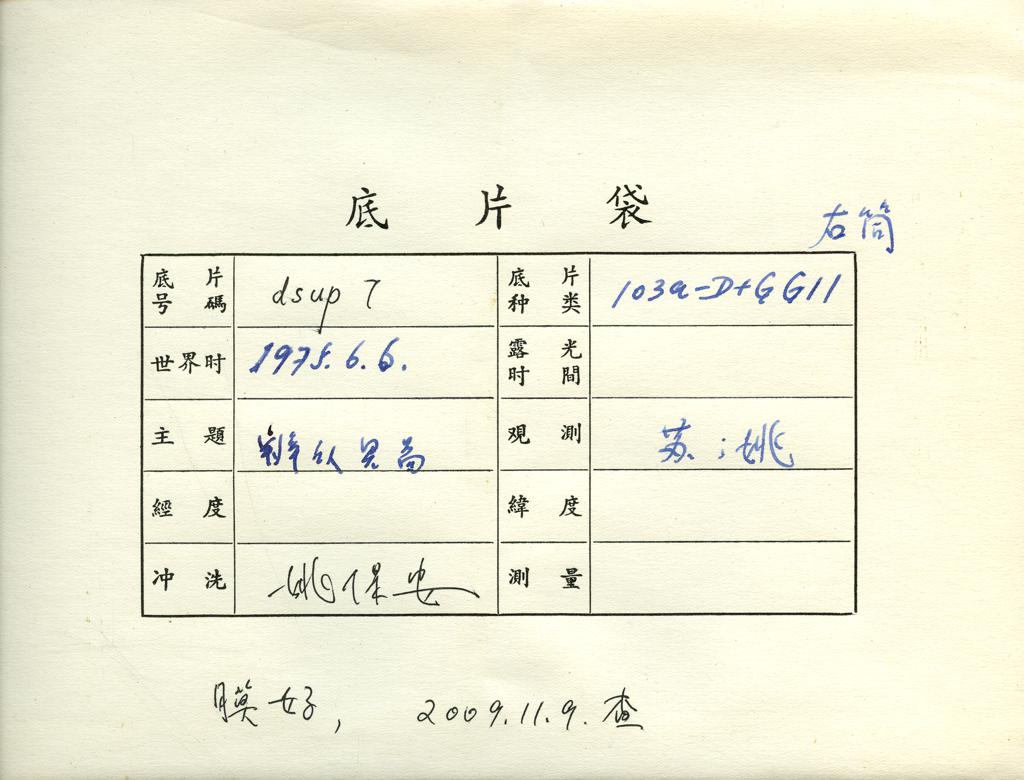 底 片 袋
右筒
底片号碼 dsup 7 底片种类 103a-D+GG11
世界时 1975.6.6. 露光时間
主題 观測 苏；姚
經度 緯度
冲洗 姚保安 測量
膜好, 2009.11.9. 查